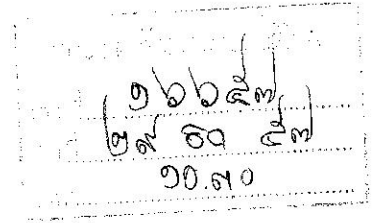 ๑๖๖/๕๗
๒๙ ธค ๕๗
๑๐.๓๐